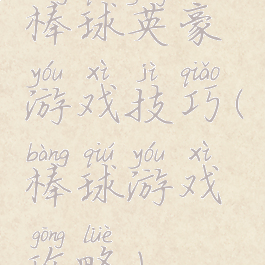 棒球英豪
yóu xì jì qiǎo
游戏技巧(
bàng qiú yóu xì
棒球游戏
gōng lüè
攻略)